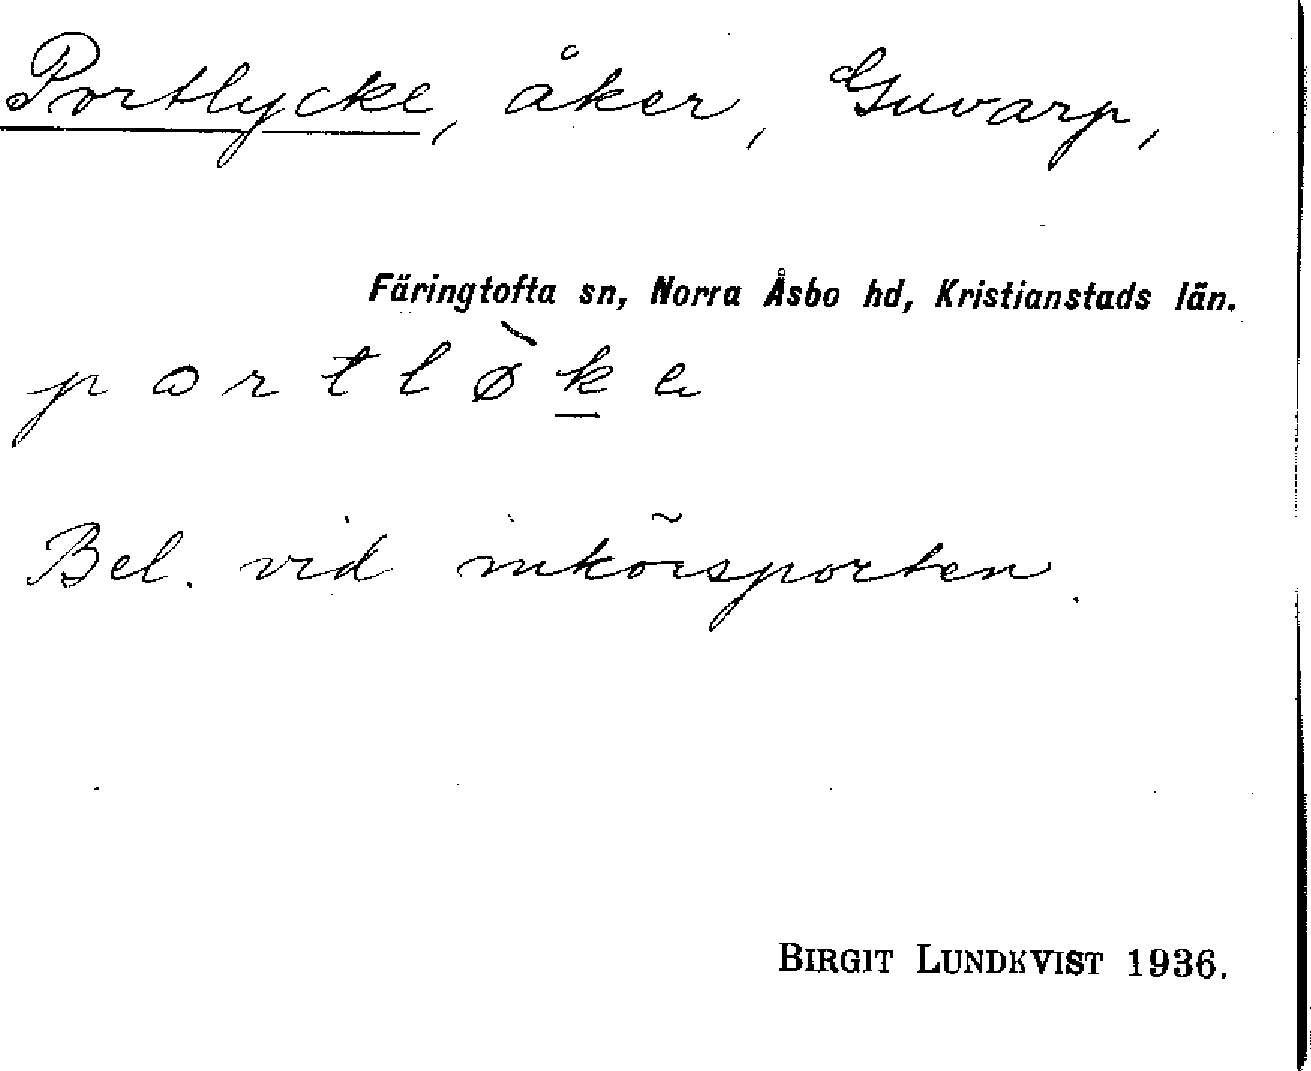 Portlycke, åker, Guvarp,
Färingtofta sn, Norra Åsbo hd, Kristianstads län.
portlø̀k̲e
Bel. vid inkörsporten.
BIRGIT LUNDKVIST 1936.